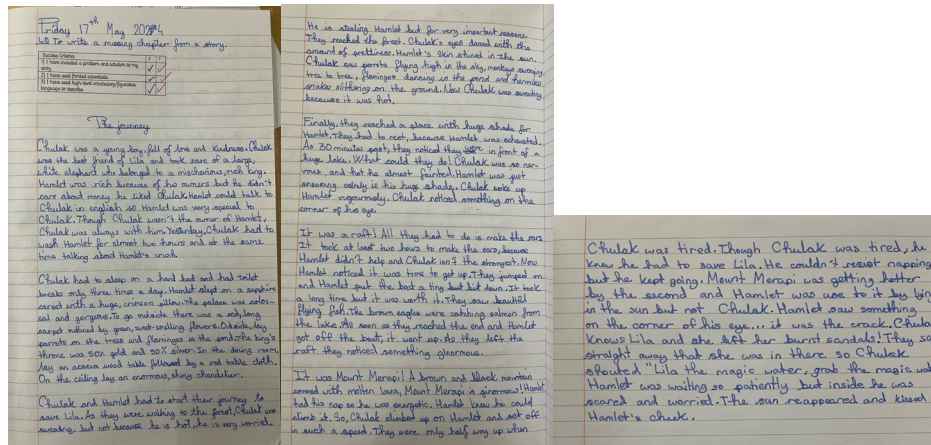 Friday 17th May 2024
LO To write a missing chapter from a story.
Success Criteria
1) I have included a problem and solution to my
story
2) I have used fronted adverbials
3) I have used high-level vocabulary/figurative
language to describe.
The journey
Chulak was a young boy, full of love and kindness. Chulak
was the best friend of Lila and took care of a large,
white elephant who belonged to a mischievious, rich king.
Hamlet was rich because of his owners but he didn't
care about money he liked Chulak. Hamlet could talk to
Chulak in english so Hamlet was very special to
Chulak. Though Chulak wasn't the owner of Hamlet,
Chulak was always with him. Yesterday, Chulak had to
wash Hamlet for almost two hours and at the same
time talking about Hamlet's crush.
Chulak had to sleep on a hard bed and had toilet
breaks only three times a day. Hamlet slept on a sapphire
carpet with a huge, crimson pillow. The palace was colos-
sal and gorgeous. To go outside there was a red, long
carpet outlined by green, sweet-smelling flowers. Outside, lay
parrots on the trees and flamingos in the pond. The king's
throne was 50% gold and 50% silver. In the dining room,
lay an acacia wood table followed by a red table cloth.
On the ceiling lay an enormous, shiny chandelier.
Chulak and Hamlet had to start their journey to
save Lila. As they were walking to the forest, Chulak was
sweating, but not because he is hot, he is very worried.
He is stealing Hamlet but for very important reasons.
They reached the forest. Chulak's eyes dazed with this
amount of prettiness. Hamlet's skin shined in the sun.
Chulak saw parrots flying high in the sky, monkeys swinging
tree to tree, flamingos dancing in the pond and harmless
snakes slithering on the ground. Now Chulak was sweating
because it was hot.
Finally, they reached a place with huge shade for
Hamlet. They had to rest, because Hamlet was exhausted.
As 30 minutes past, they noticed they were in front of a
huge lake. What could they do! Chulak was so ner-
vous, and hot he almost fainted. Hamlet was just
snoozing calmly in his huge shade. Chulak woke up
Hamlet vigorously. Chulak noticed something on the
corner of his eye.
It was a raft! All they had to do is make the oars
It took at least two hours to make the oars, because
Hamlet didn't help and Chulak isn't the strongest. Now
Hamlet noticed it was time to get up. They jumped on
and Hamlet put the boat a tiny bit down. It took
a long time but it was worth it. They saw beautiful
flying fish. The brown eagles were catching salmon from
the lake. As soon as they reached the end and Hamlet
got off the boat, it went up. As they left the
raft they noticed something ginormous.
It was Mount Merapi! A brown and black mountain
covered with molten lava, Mount Merapi is ginormous! Hamlet
had his nap so he was energetic. Hamlet knew he could
climb it. So, Chulak climbed up on Hamlet and set off
in such a speed. They were only half way up when
Chulak was tired. Though Chulak was tired, he
knew he had to save Lila. He couldn't resist napping
but he kept going. Mount Merapi was getting hotter
by the second and Hamlet was use to it by lying
in the sun but not Chulak. Hamlet saw something
on the corner of his eye... it was the crack. Chula
knows Lila and she left her burnt sandals! They so
straight away that she was in there so Chulak
shouted "Lila the magic water, grab the magic wa
Hamlet was waiting so patiently but inside he was
scared and worried. The sun reappeared and kissed
Hamlet's cheek.